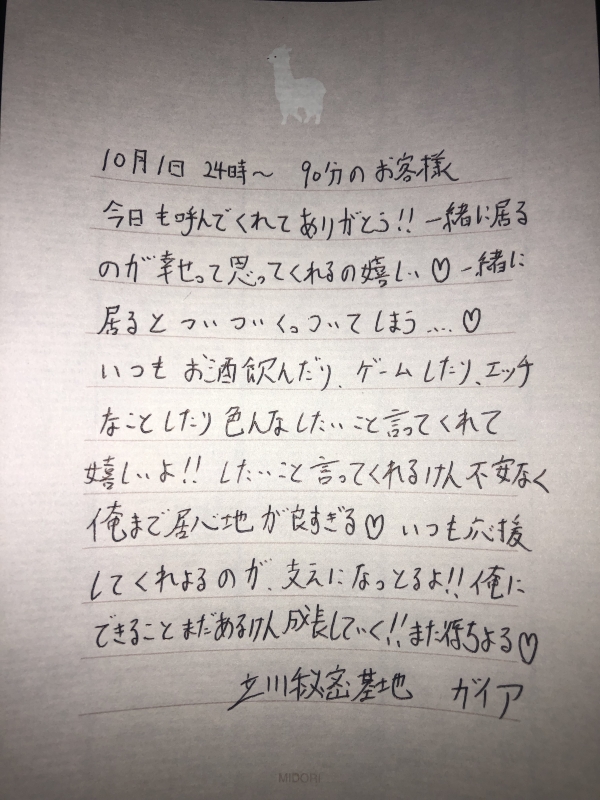 10月1日 24時〜 90分のお客様
今日も呼んでくれてありがとう!! 一緒に居る
のが幸せって思ってくれるの嬉しい♡ 一緒に
居るとついついくっついてしまう....♡
いつもお酒飲んだり、ゲームしたり、エッチ
なことしたり色んなしたいこと言ってくれて
嬉しいよ!! したいこと言ってくれるけん不安なく
俺まで居心地が良すぎる♡ いつも応援
してくれよるのが、支えになっとるよ!! 俺に
できることまだあるけん成長していく!!また待ちよる♡
立川秘密基地 ガイア
MIDORI